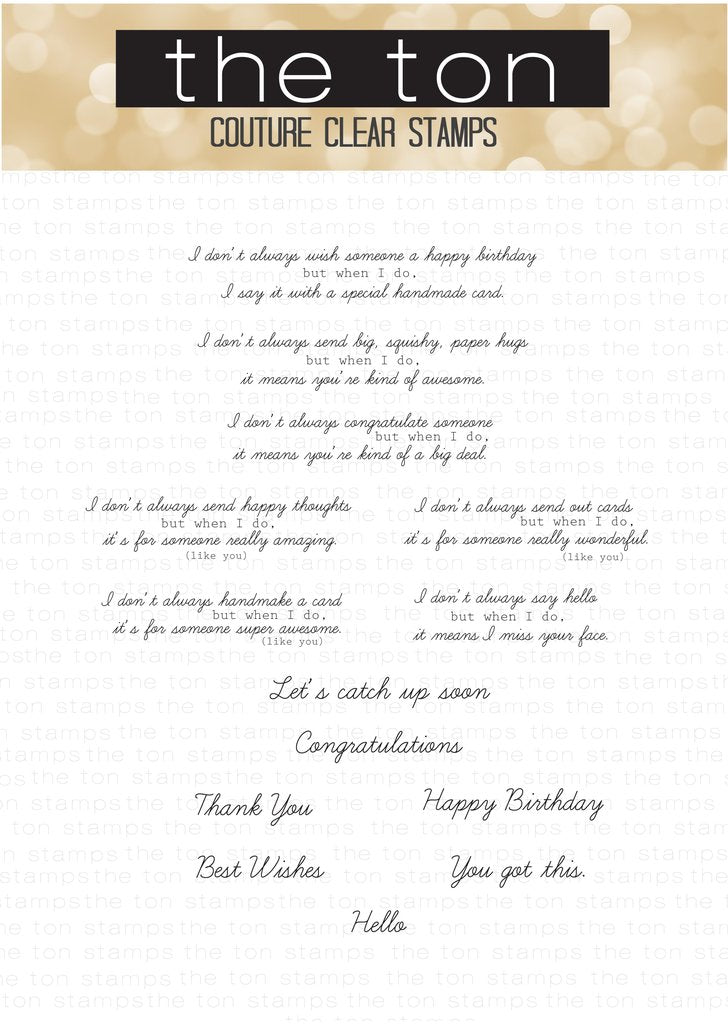 the ton
COUTURE CLEAR STAMPS
I don't always wish someone a happy birthday
but when I do,
I say it with a special handmade card.
I don't always send big, squishy, paper hugs
but when I do,
it means you're kind of awesome.
I don't always congratulate someone
but when I do,
it means you're kind of a big deal.
I don't always send happy thoughts
but when I do,
it's for someone really amazing
(like you)
I don't always send out cards
but when I do,
it's for someone really wonderful.
(like you)
I don't always handmake a card
but when I do,
it's for someone super awesome.
(like you)
I don't always say hello
but when I do,
it means I miss your face.
Let's catch up soon
Congratulations
Thank You
Happy Birthday
Best Wishes
You got this.
Hello